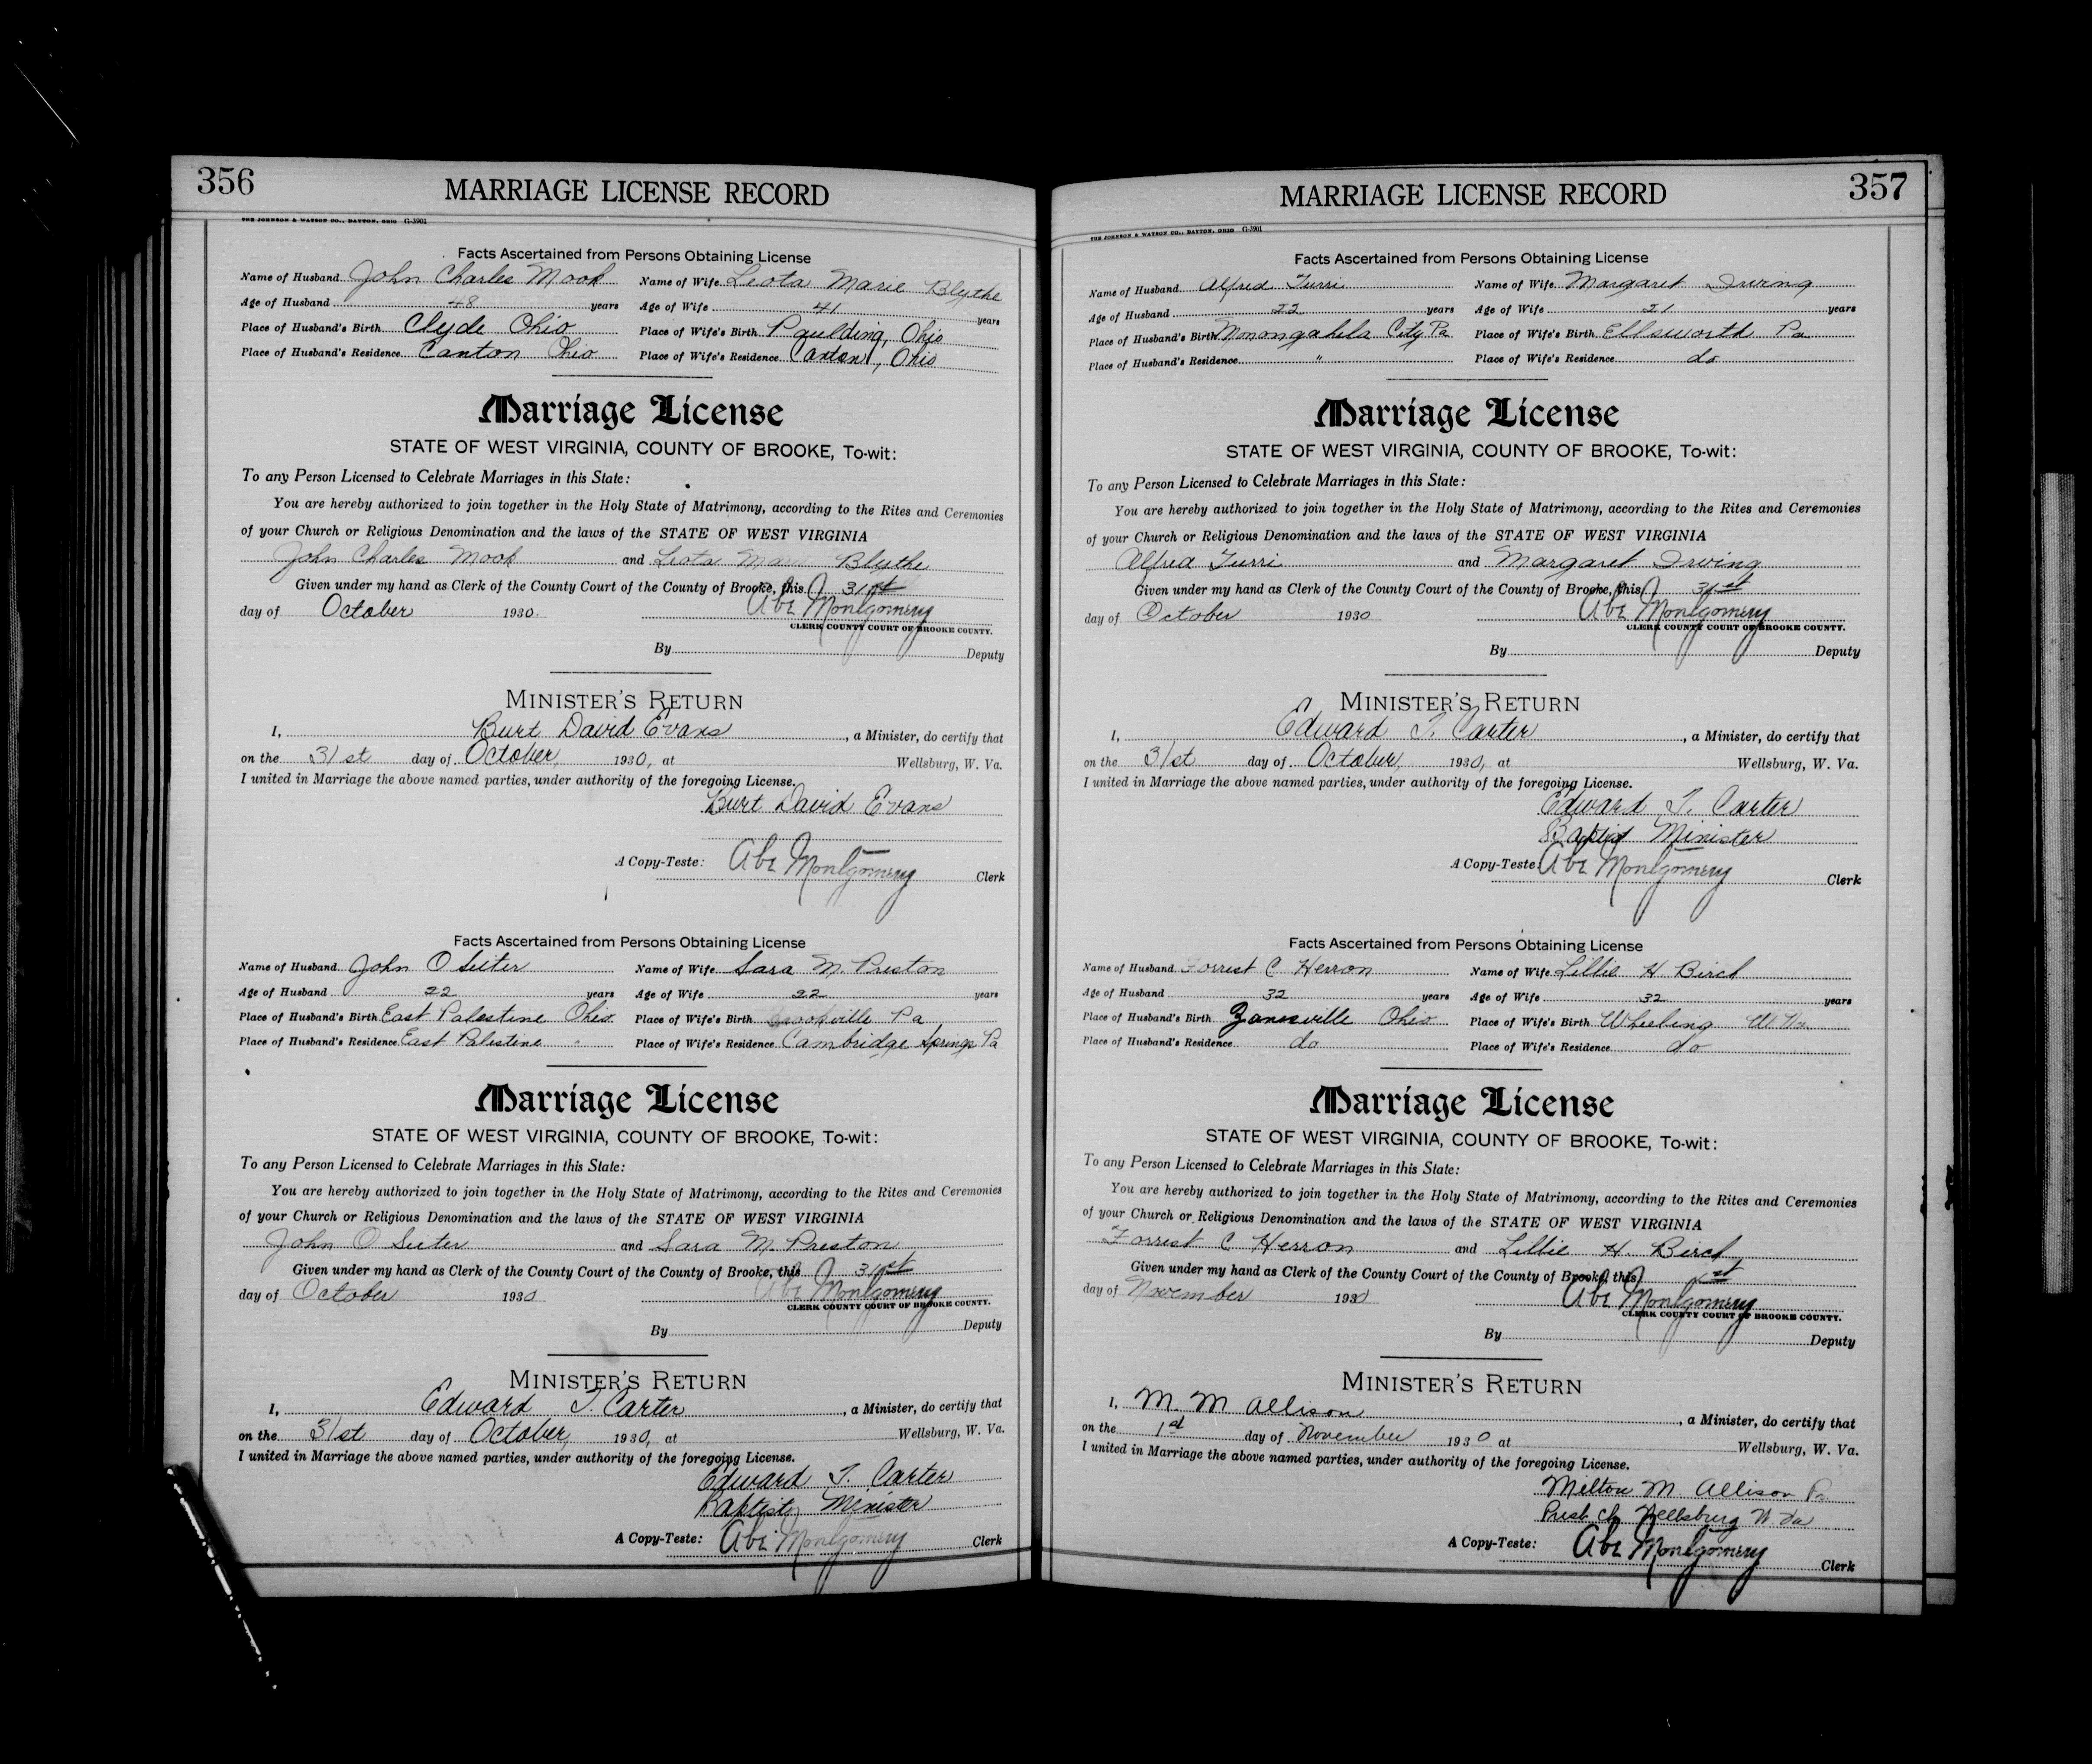 356
MARRIAGE LICENSE RECORD
THE JOHNSON & WATSON CO., DAYTON, OHIO G-3901
Facts Ascertained from Persons Obtaining License
Name of Husband John Charles Mook Name of Wife Leota Marie Blythe
Age of Husband 48 years Age of Wife 41 years
Place of Husband's Birth Clyde Ohio Place of Wife's Birth Paulding, Ohio
Place of Husband's Residence Canton Ohio Place of Wife's Residence Canton, Ohio
Marriage License
STATE OF WEST VIRGINIA, COUNTY OF BROOKE, To-wit:
To any Person Licensed to Celebrate Marriages in this State:
You are hereby authorized to join together in the Holy State of Matrimony, according to the Rites and Ceremonies
of your Church or Religious Denomination and the laws of the STATE OF WEST VIRGINIA
John Charles Mook and Leota Marie Blythe
Given under my hand as Clerk of the County Court of the County of Brooke, this 31st
day of October 1930. Abe Montgomery
CLERK COUNTY COURT OF BROOKE COUNTY.
By Deputy
MINISTER'S RETURN
I, Burt David Evans, a Minister, do certify that
on the 31st day of October, 1930, at Wellsburg, W. Va.
I united in Marriage the above named parties, under authority of the foregoing License.
Burt David Evans
A Copy-Teste: Abe Montgomery Clerk
Facts Ascertained from Persons Obtaining License
Name of Husband John O Suter Name of Wife Sara M. Preston
Age of Husband 22 years Age of Wife 22 years
Place of Husband's Birth East Palestine Ohio Place of Wife's Birth Brookville Pa
Place of Husband's Residence East Palestine " Place of Wife's Residence Cambridge Springs Pa
Marriage License
STATE OF WEST VIRGINIA, COUNTY OF BROOKE, To-wit:
To any Person Licensed to Celebrate Marriages in this State:
You are hereby authorized to join together in the Holy State of Matrimony, according to the Rites and Ceremonies
of your Church or Religious Denomination and the laws of the STATE OF WEST VIRGINIA
John O Suter and Sara M. Preston
Given under my hand as Clerk of the County Court of the County of Brooke, this 31st
day of October 1930 Abe Montgomery
CLERK COUNTY COURT OF BROOKE COUNTY.
By Deputy
MINISTER'S RETURN
I, Edward T. Carter, a Minister, do certify that
on the 31st day of October, 1930, at Wellsburg, W. Va.
I united in Marriage the above named parties, under authority of the foregoing License.
Edward T. Carter
Baptist Minister
A Copy-Teste: Abe Montgomery Clerk
357
MARRIAGE LICENSE RECORD
THE JOHNSON & WATSON CO., DAYTON, OHIO G-3901
Facts Ascertained from Persons Obtaining License
Name of Husband Alfred Turri Name of Wife Margaret Irving
Age of Husband 22 years Age of Wife 21 years
Place of Husband's Birth Monongahela City Pa Place of Wife's Birth Ellsworth Pa
Place of Husband's Residence " Place of Wife's Residence do
Marriage License
STATE OF WEST VIRGINIA, COUNTY OF BROOKE, To-wit:
To any Person Licensed to Celebrate Marriages in this State:
You are hereby authorized to join together in the Holy State of Matrimony, according to the Rites and Ceremonies
of your Church or Religious Denomination and the laws of the STATE OF WEST VIRGINIA
Alfred Turri and Margaret Irving
Given under my hand as Clerk of the County Court of the County of Brooke, this 31st
day of October 1930 Abe Montgomery
CLERK COUNTY COURT OF BROOKE COUNTY.
By Deputy
MINISTER'S RETURN
I, Edward T. Carter, a Minister, do certify that
on the 31st day of October, 1930, at Wellsburg, W. Va.
I united in Marriage the above named parties, under authority of the foregoing License.
Edward T. Carter
Baptist Minister
A Copy-Teste: Abe Montgomery Clerk
Facts Ascertained from Persons Obtaining License
Name of Husband Forrest C Herron Name of Wife Lillie H Birch
Age of Husband 32 years Age of Wife 32 years
Place of Husband's Birth Zanesville Ohio Place of Wife's Birth Wheeling W Va
Place of Husband's Residence do Place of Wife's Residence do
Marriage License
STATE OF WEST VIRGINIA, COUNTY OF BROOKE, To-wit:
To any Person Licensed to Celebrate Marriages in this State:
You are hereby authorized to join together in the Holy State of Matrimony, according to the Rites and Ceremonies
of your Church or Religious Denomination and the laws of the STATE OF WEST VIRGINIA
Forrest C Herron and Lillie H. Birch
Given under my hand as Clerk of the County Court of the County of Brooke, this 1st
day of November 1930 Abe Montgomery
CLERK COUNTY COURT OF BROOKE COUNTY.
By Deputy
MINISTER'S RETURN
I, M. M Allison, a Minister, do certify that
on the 1st day of November 1930 at Wellsburg, W. Va.
I united in Marriage the above named parties, under authority of the foregoing License.
Milton M Allison
Presb Ch Wellsburg W. Va
A Copy-Teste: Abe Montgomery Clerk